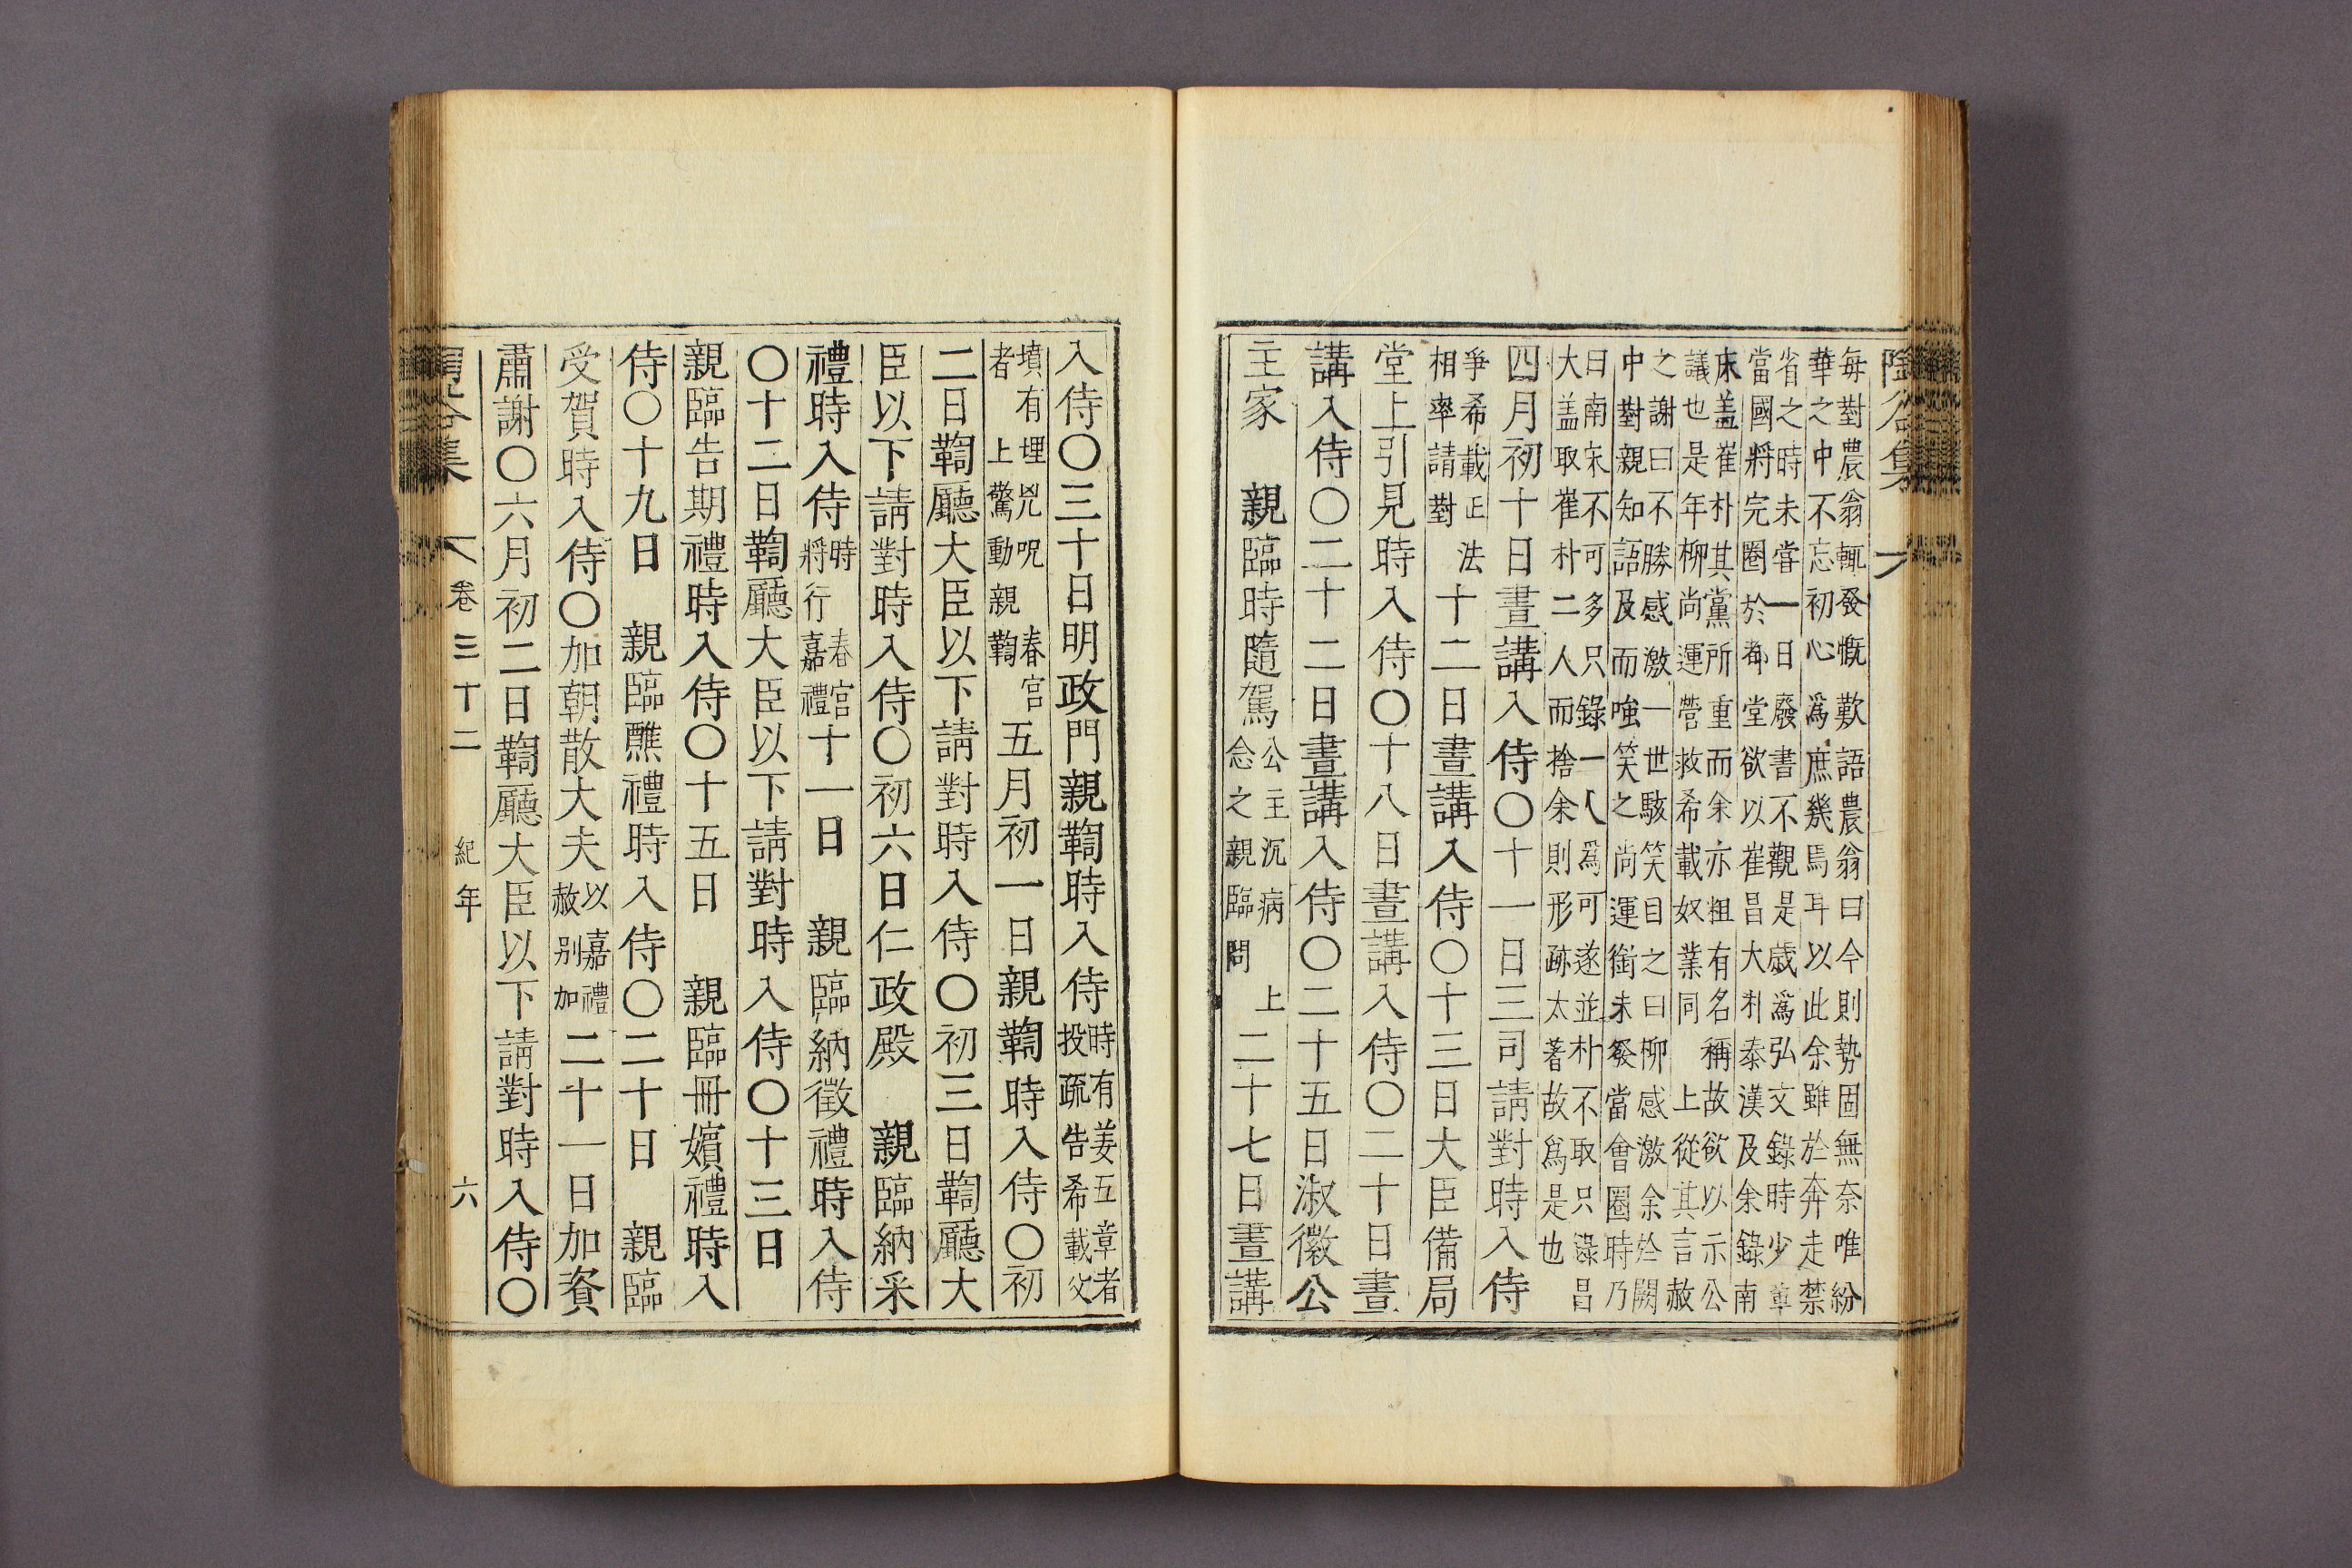 陶谷集
每對農翁輒發慨歎語農翁曰今則勢固無奈唯紛
華之中不忘初心爲庶幾焉耳以此余雖於奔走禁
省之時未甞一日廢書不觀是歲爲弘文錄時少章
當國將完圈於都堂欲以崔昌大朴泰漢及余錄南
床盖崔朴其黨所重而余亦粗有名稱故欲以示公
議也是年柳尙運營救希載奴業同 上從其言赦
之謝曰不勝感激一世駭笑目之曰柳感激余於闕
中對親知語及而嗤笑之尙運銜未發當會圈時乃
曰南宋不可多只錄一人爲可遂並朴不取只錄昌
大盖取崔朴二人而捨余則形跡太著故爲是也
四月初十日晝講入侍〇十一日三司請對時入侍
爭希載正法相率請對十二日晝講入侍〇十三日大臣備局
堂上引見時入侍〇十八日晝講入侍〇二十日晝
講入侍〇二十二日晝講入侍〇二十五日淑徽公
主家 親臨時隨駕公主沉病 上念之親臨問二十七日晝講
入侍〇三十日明政門親鞫時入侍時有姜五章者投疏告希載父
墳有埋兇呪 春宮者 上驚動親鞫五月初一日親鞫時入侍〇初
二日鞫廳大臣以下請對時入侍〇初三日鞫廳大
臣以下請對時入侍〇初六日仁政殿 親臨納采
禮時入侍時 春宮將行嘉禮十一日 親臨納徵禮時入侍
〇十二日鞫廳大臣以下請對時入侍〇十三日
親臨告期禮時入侍〇十五日 親臨冊嬪禮時入
侍〇十九日 親臨醮禮時入侍〇二十日 親臨
受賀時入侍〇加朝散大夫以嘉禮赦別加二十一日加資
肅謝〇六月初二日鞫廳大臣以下請對時入侍〇
陶谷集 卷三十二 紀年 六